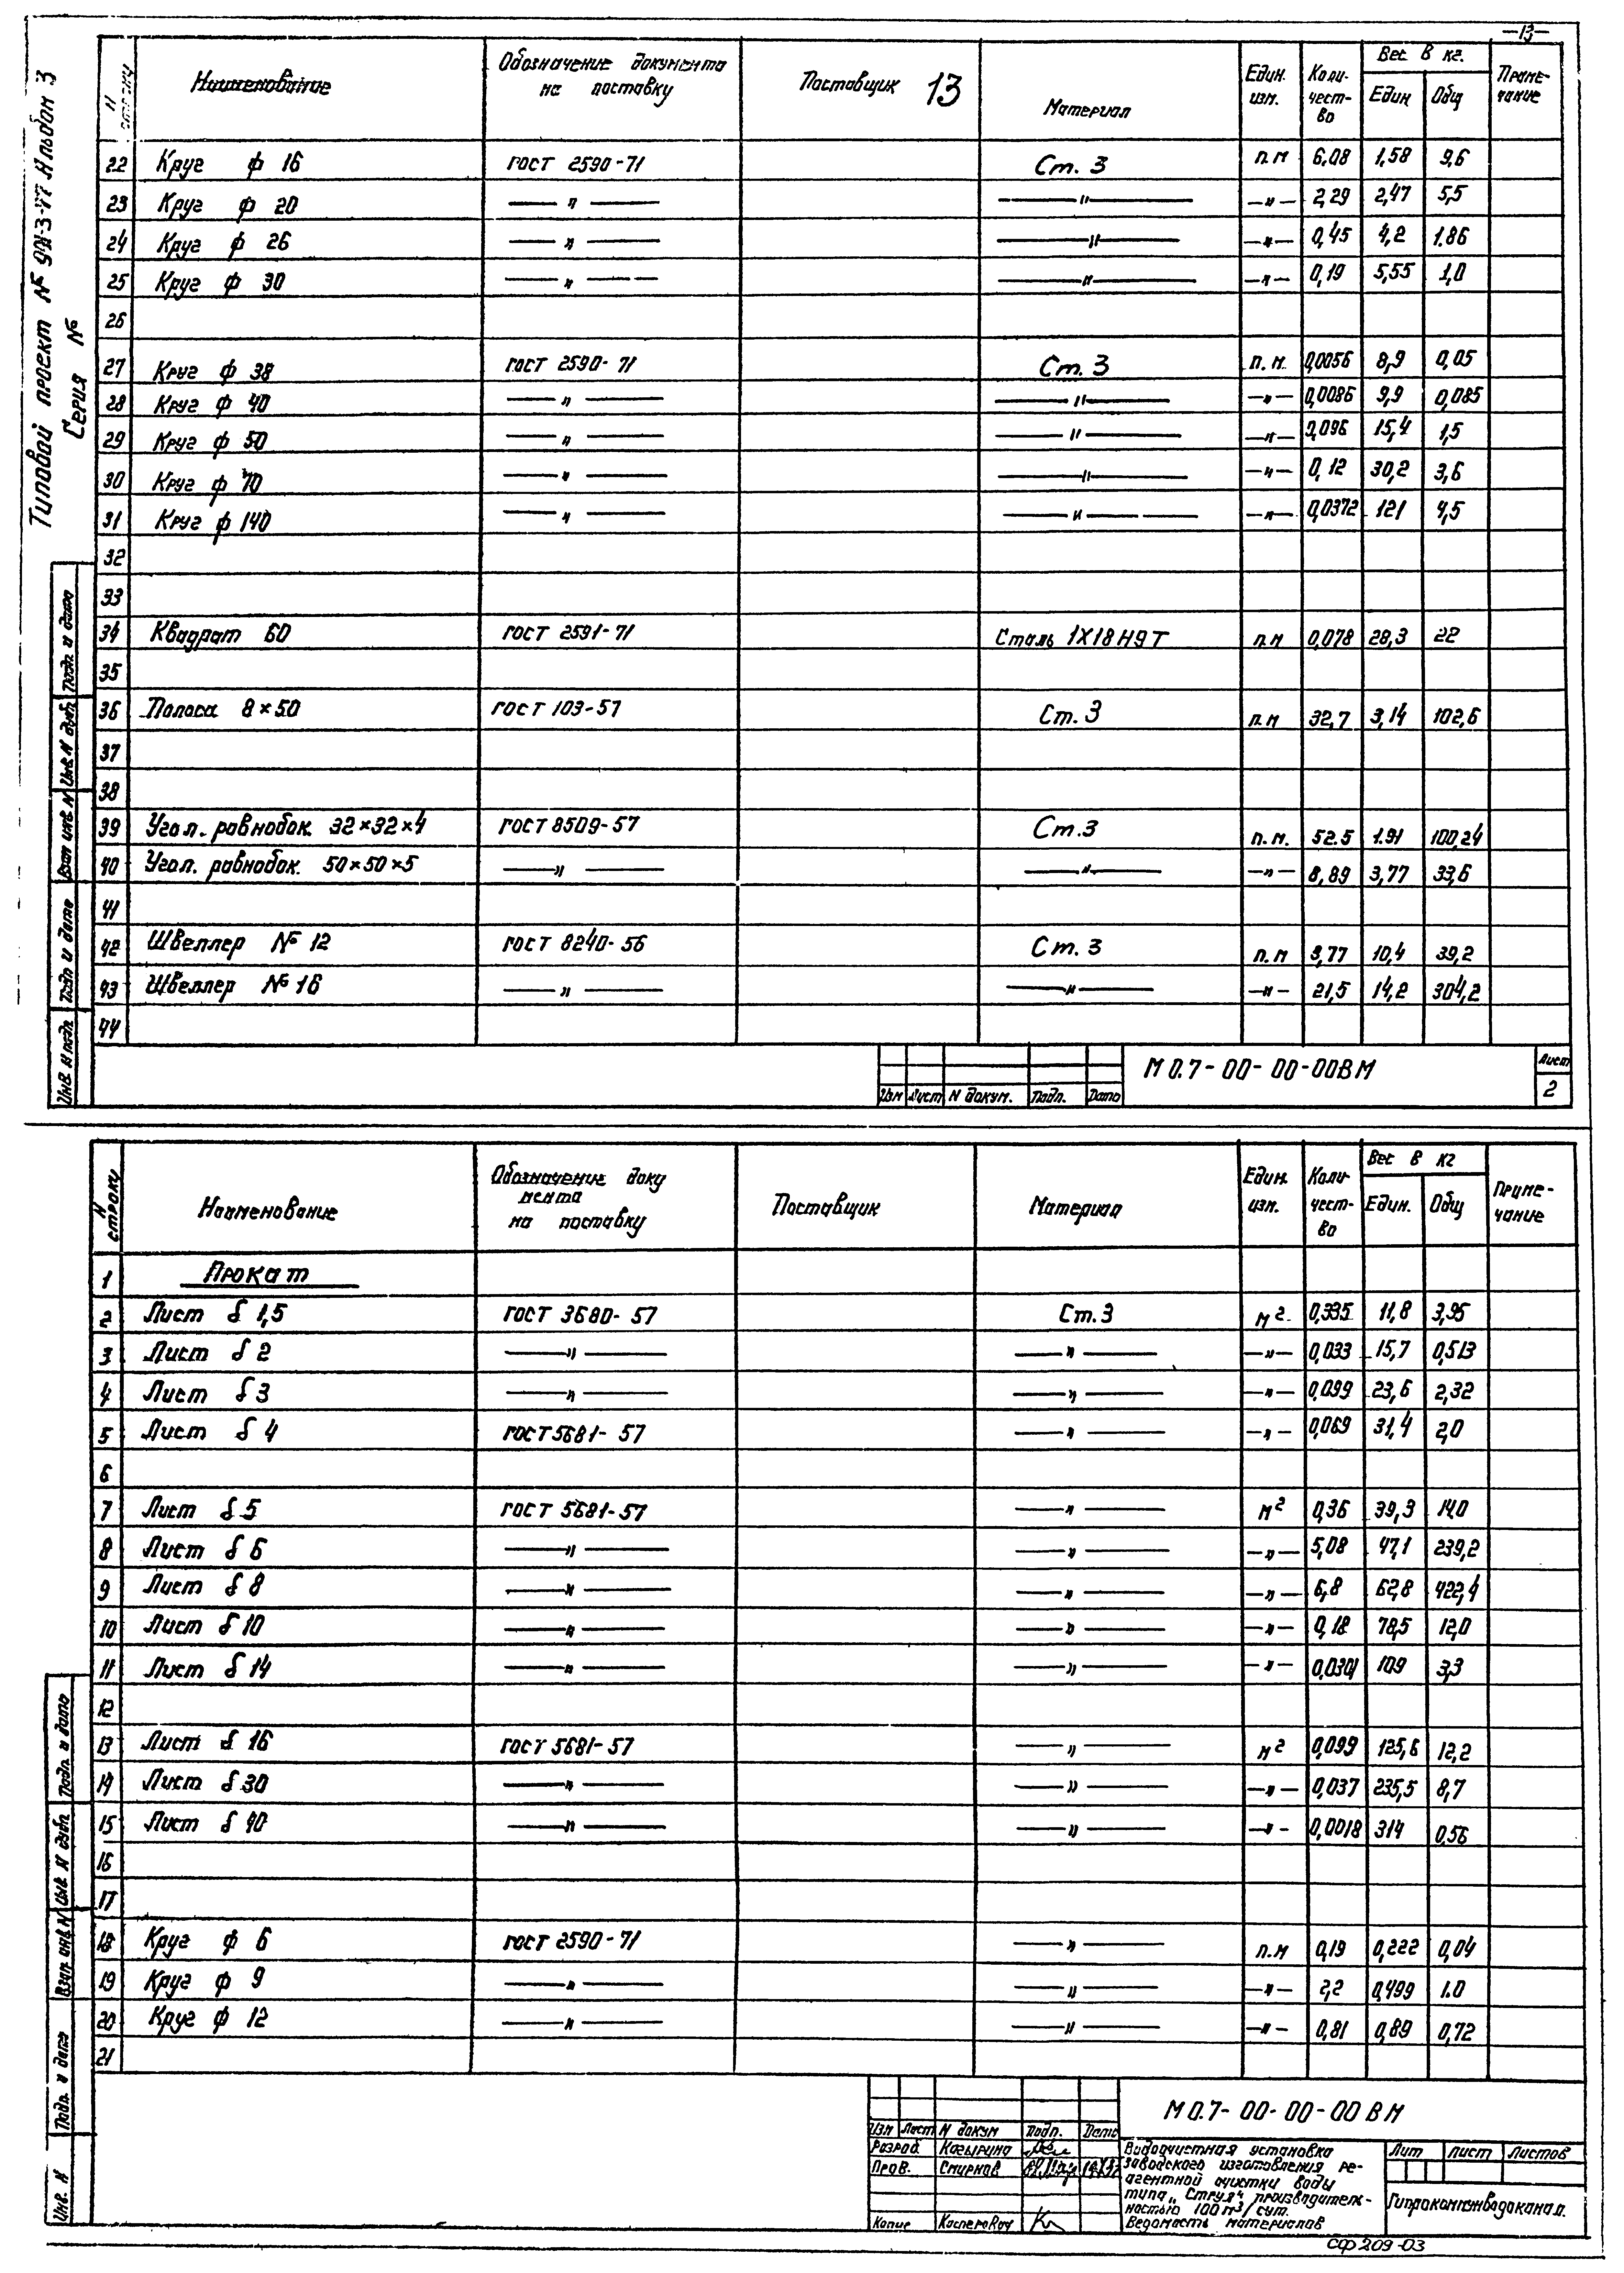 —13—
Типовой проект №
Альбом 3
Серия №
Наименование | Обозначение документа на поставку | Поставщик 13 | Материал | Един. изм. | Коли-чест-во | Вес в кг. Един | Общ | Приме-чание
22 Круг ф 16 ГОСТ 2590-71 Ст. 3 п.м 6,08 1,58 9,6
23 Круг ф 20 —"— —"— —"— 2,29 2,47 5,5
24 Круг ф 26 —"— —"— —"— 0,45 4,2 1.86
25 Круг ф 30 —"— —"— —"— 0,19 5,55 1,0
26
27 Круг ф 38 ГОСТ 2590-71 Ст. 3 п.м. 0,0056 8,9 0,05
28 Круг ф 40 —"— —"— —"— 0,0086 9,9 0,085
29 Круг ф 50 —"— —"— —"— 0,096 15,4 1,5
30 Круг ф 70 —"— —"— —"— 0,12 30,2 3,6
31 Круг ф 140 —"— —"— —"— 0,0372 121 4,5
32
33
34 Квадрат 60 ГОСТ 2591-71 Сталь 1Х18Н9Т п.м 0,078 28,3 22
35
36 Полоса 8×50 ГОСТ 103-57 Ст. 3 п.м 32,7 3,14 102,6
37
38
39 Угол. равнобок. 32×32×4 ГОСТ 8509-57 Ст.3 п.м. 52.5 1.91 100,24
40 Угол. равнобок. 50×50×5 —"— —"— —"— 8,89 3,77 33,6
41
42 Швеллер № 12 ГОСТ 8240-56 Ст. 3 п.м 3,77 10,4 39,2
43 Швеллер № 16 —"— —"— —"— 21,5 14,2 304,2
44
Инв. № подл. | Подп и дата | Взам инв. N | Инв. N дубл | Подп. и дата
Изм Лист N докум. Подп. Дата
М 0.7-00-00-00ВМ
Лист
2
N строки | Наименование | Обозначение доку мента на поставку | Поставщик | Материал | Един. изм. | Коли-чест-во | Вес в кг Един. | Общ | Приме-чание
1 Прокат
2 Лист δ 1,5 ГОСТ 3680-57 Ст.3 м2 0,335 11,8 3,95
3 Лист δ 2 —"— —"— —"— 0,033 15,7 0,513
4 Лист δ 3 —"— —"— —"— 0,099 23,6 2,32
5 Лист δ 4 ГОСТ 5681-57 —"— —"— 0,069 31,4 2,0
6
7 Лист δ 5 ГОСТ 5681-57 —"— м2 0,36 39,3 14,0
8 Лист δ 6 —"— —"— —"— 5,08 47,1 239,2
9 Лист δ 8 —"— —"— —"— 6,8 62,8 422,4
10 Лист δ 10 —"— —"— —"— 0,18 78,5 12,0
11 Лист δ 14 —"— —"— —"— 0,0301 109 3,3
12
13 Лист δ 16 ГОСТ 5681-57 —"— м2 0,099 125,6 12,2
14 Лист δ 30 —"— —"— —"— 0,037 235,5 8,7
15 Лист δ 40 —"— —"— —"— 0,0018 314 0,56
16
17
18 Круг ф 6 ГОСТ 2590-71 —"— п.м 0,19 0,222 0,04
19 Круг ф 9 —"— —"— —"— 2,2 0,499 1.0
20 Круг ф 12 —"— —"— —"— 0,81 0,89 0,72
21
Инв. N | Подп. и дата | Взам. инв. N | Инв. N дубл. | Подп. и дата
М 0.7-00-00-00 ВМ
Изм Лист N докум Подп. Дата
Разраб. Казырина
Пров. Смирнов
Копир
Водоочистная установка
заводского изготовления ре-
агентной очистки воды
типа „Струя" производитель-
ностью 100 м3/сут.
Ведомость материалов
Лит Лист Листов
Гипрокоммунводоканал.
СФ 209-03